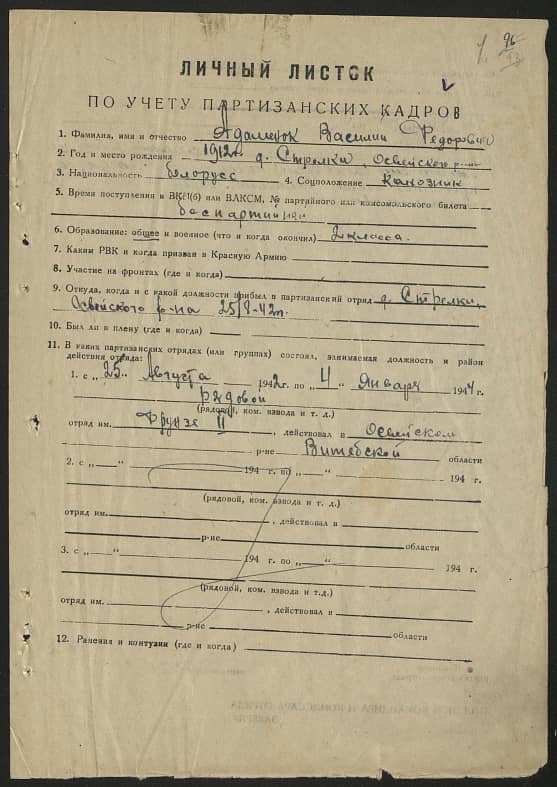 96
ЛИЧНЫЙ ЛИСТОК
ПО УЧЕТУ ПАРТИЗАНСКИХ КАДРОВ
1. Фамилия, имя и отчество Адаменок Василий Федорович
2. Год и место рождения 1912г. д. Стрелки, Освейского р-на
3. Национальность белорусс 4. Соцположение Колхозник
5. Время поступления в ВКП(б) или ВЛКСМ, № партийного или комсомольского билета
беспартийный
6. Образование: общее и военное (что и когда окончил) 2 класса.
7. Каким РВК и когда призван в Красную Армию
8. Участие на фронтах (где и когда)
9. Откуда, когда и с какой должности прибыл в партизанский отряд д. Стрелки,
Освейского р-на 25/8-42г.
10. Был ли в плену (где и когда)
11. В каких партизанских отрядах (или группах) состоял, занимаемая должность и район
действия отряда:
1. с „25“ Августа 1942г. по „4“ Января 1944 г.
рядовой
(рядовой, ком. взвода и т. д.)
отряд им. Фрунзе II, действовал в Освейском
р-не Витебской области
2. с „ “ 194 г. по „ “ 194 г.
(рядовой, ком. взвода и т. д.)
отряд им. , действовал в
р-не области
3. с „ “ 194 г. по „ “ 194 г.
(рядовой, ком. взвода и т.д.)
отряд им. , действовал в
р-не области
12. Ранения и контузии (где и когда)